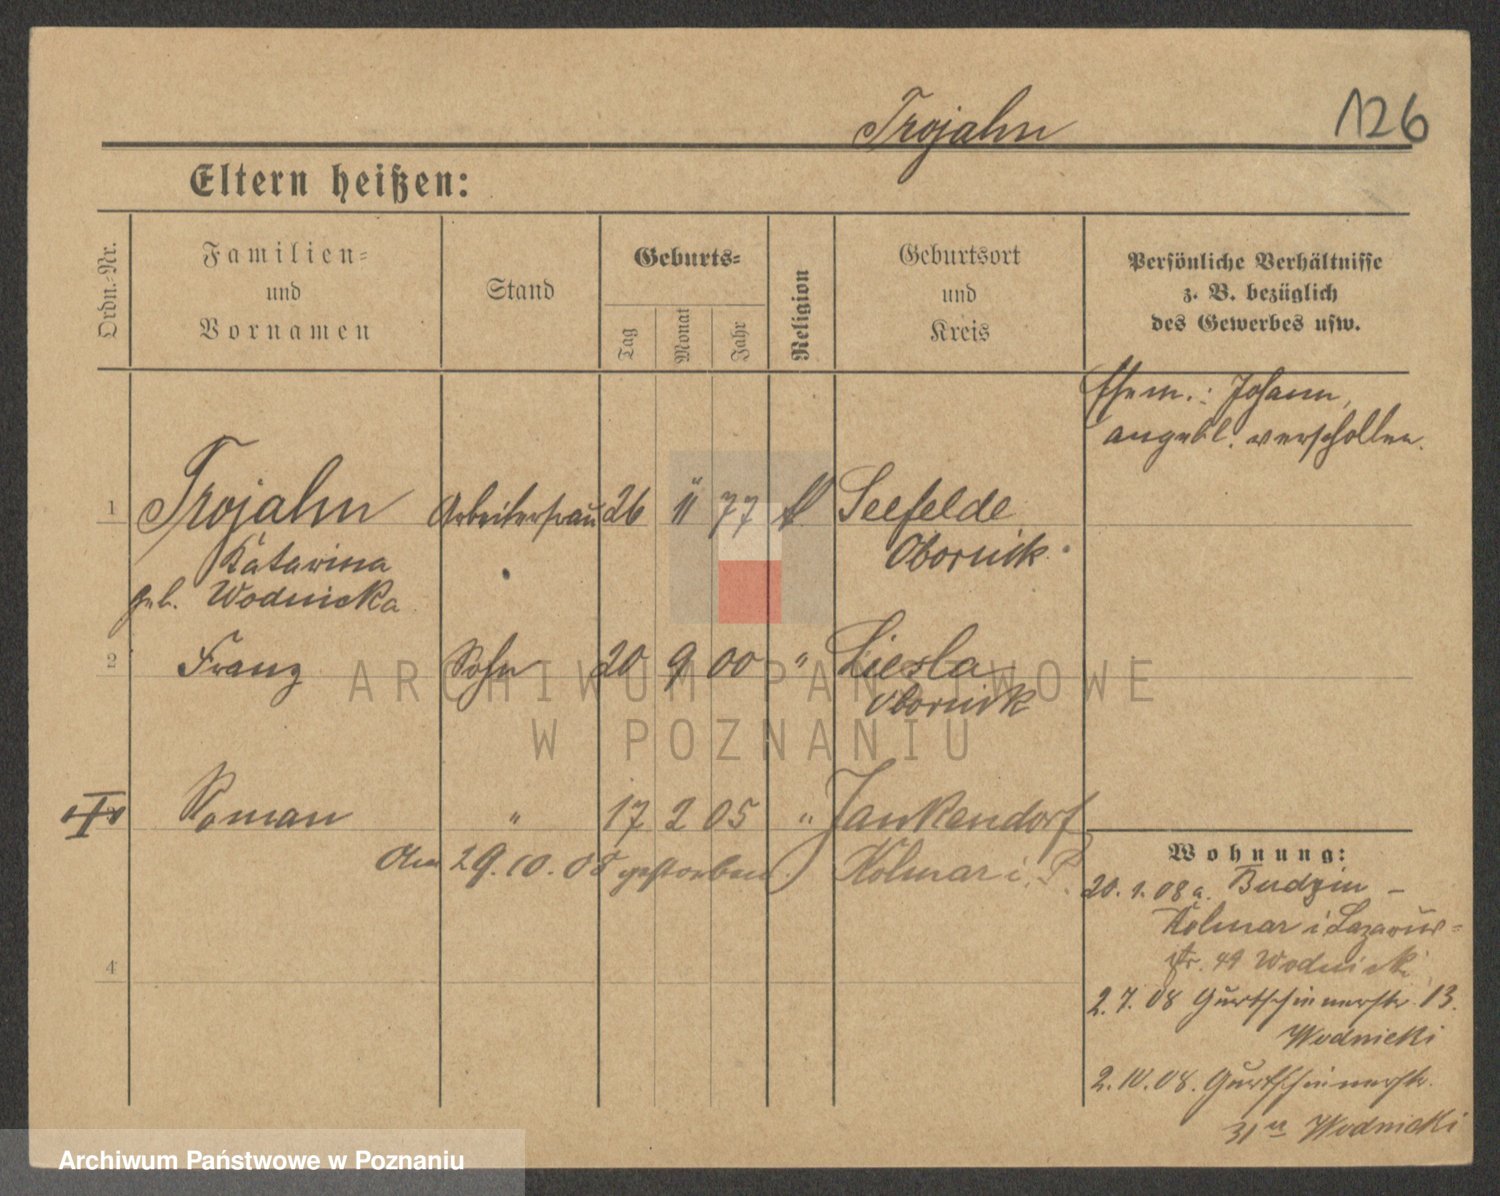 Trojahn
126
Eltern heißen:
Ordn.-Nr.
Familien-
und
Vornamen
Stand
Geburts-
Tag
Monat
Jahr
Religion
Geburtsort
und
Kreis
Persönliche Verhältnisse
z. B. bezüglich
des Gewerbes usw.
Ehem.: Johann,
angebl. verschollen.
1 Trojahn Arbeiterfrau 26 11 77 Seefelde
Katarina Obornik
geb. Wodnicka
2 Franz Sohn 20 9 00 " Obornik
Roman " 17 2 05 " Jankendorf
29.10.08 gestorben) Kolmar i. P.
4
Wohnung:
20.1.08 a. Budzin -
Kolmar i Lazarus-
str. 49 Wodnicki
2.7.08 Gurtschinerstr. 13.
Wodnicki
2.10.08. Gurtschinerstr.
31 Wodnicki
ARCHIWUM PAŃSTWOWE
W POZNANIU
Archiwum Państwowe w Poznaniu